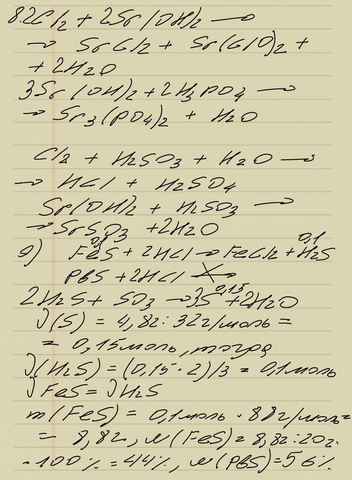 8. 2Cl2 + 2Sr(OH)2 →
→ SrCl2 + Sr(ClO)2 +
+ 2H2O
3Sr(OH)2 + 2H3PO4 →
→ Sr3(PO4)2 + H2O
Cl2 + H2SO3 + H2O →
→ HCl + H2SO4
Sr(OH)2 + H2SO3 →
→ SrSO3 + 2H2O
9) FeS + 2HCl → FeCl2 + H2S
0,1 0,1
PbS + 2HCl ↛
2H2S + SO2 → 3S + 2H2O
0,15
ν(S) = 4,8г : 32г/моль =
= 0,15моль, тогда
ν(H2S) = (0,15 · 2)/3 = 0,1моль
ν FeS = ν H2S
m(FeS) = 0,1моль · 88г/моль =
= 8,8г, w(FeS) = 8,8г : 20г ·
· 100% = 44%, w(PbS) = 56%